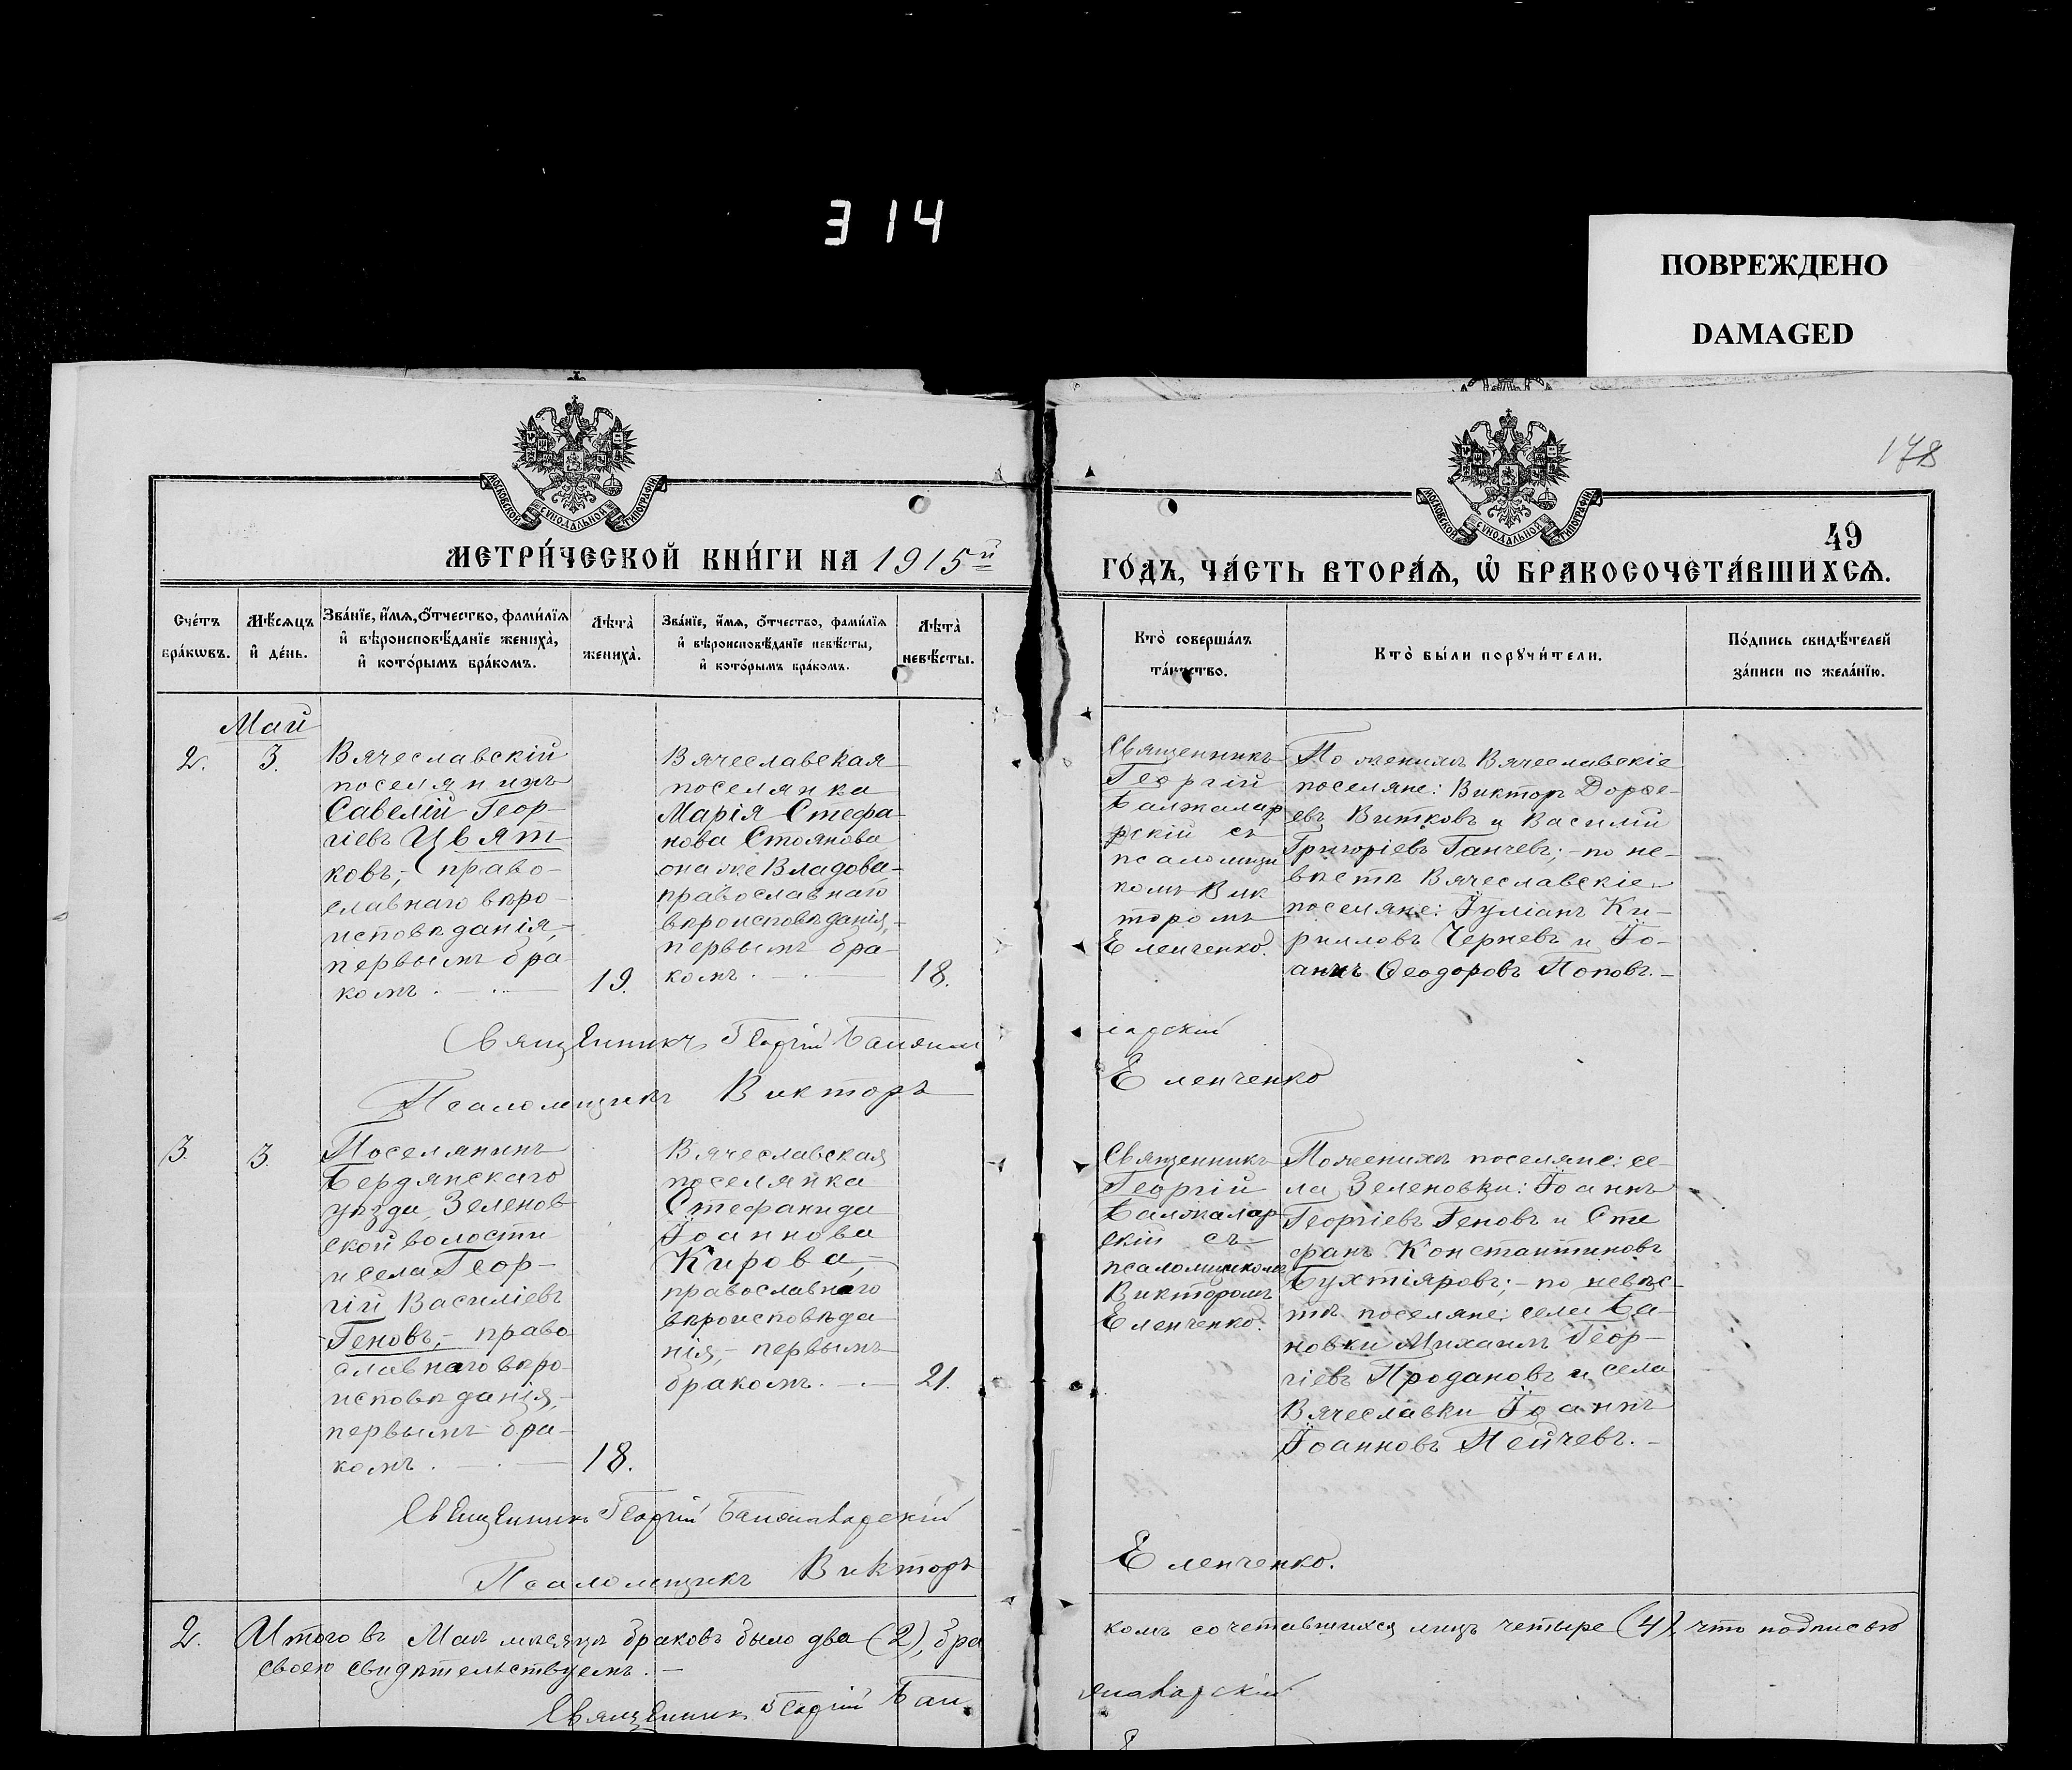 314
ПОВРЕЖДЕНО
DAMAGED
178
МОСКОВСКОЙ СѴНОДАЛЬНОЙ ТИПОГРАФІИ
МОСКОВСКОЙ СѴНОДАЛЬНОЙ ТИПОГРАФІИ
49
МЕТРИ́ЧЕСКОЙ КНИ́ГИ НА 1915й
ГО́ДЪ, ЧА́СТЬ ВТОРА́Ѧ, Ѡ҆ БРАКОСОЧЕТА́ВШИХСѦ.
Сче́тъ
бра́кѡвъ.
Мѣ́сѧцъ
и҆ де́нь.
Зва́нїе, и҆́мѧ, ѻ҆́тчество, фами́лїѧ
и҆ вѣроисповѣ́данїе жениха̀,
и҆ кото́рымъ бра́комъ.
Лѣ́та̀
жениха̀.
Зва́нїе, и҆́мѧ, ѻ҆́тчество, фами́лїѧ
и҆ вѣроисповѣ́данїе невѣ́сты,
и҆ кото́рымъ бра́комъ.
Лѣ́та̀
невѣ́сты.
Кто̀ соверша́лъ
та́инство.
Кто̀ бы́ли порꙋчи́тели.
По́дпись свидѣ́телей
за́писи по жела́нїю.
Май
2.
3.
Вячеславскій
поселянинъ
Савелій Геор-
гіевъ Цвят-
ковъ,- право-
славнаго веро-
исповѣданія,-
первымъ бра-
комъ. — . —
19.
Вячеславская
поселянка
Марія Стефа-
нова Стоянова
она же Владова-
православнаго
вѣроисповѣданія,-
первымъ бра-
комъ. —
18.
Священникъ
Георгій
Балжалар
рскій съ
псаломщи
комъ Вик
торомъ
Еленченко.
По женихѣ Вячеславскіе
поселяне: Викторъ Дорѳе-
евъ Витковъ и Василій
Григоріевъ Ганчевъ;- по не-
вѣстѣ Вячеславскіе
поселяне: Іуліанъ Ки-
рилловъ Черневъ и Іо-
аннъ Ѳеодоровъ Поповъ.-
Священникъ Георгій Балжа
ларскій
Псаломщикъ Викторъ
Еленченко
3.
3.
Поселянинъ
Бердянскаго
уѣзда Зеленов
ской волости
и села Геор-
гій Василіевъ
Геновъ,- право
славнаго веро-
исповѣданія,-
первымъ бра-
комъ. — . —
18.
Вячеславская
поселянка
Стефанида
Іоаннова
Кирова,-
православнаго
вѣроисповѣда
нія,- первымъ
бракомъ. —
21.
Священникъ
Георгій
Балжалар
скій съ
псаломщикомъ
Викторомъ
Еленченко.
По женихѣ поселяне: се-
ла Зеленовки: Іоаннъ
Георгіевъ Геновъ и Сте
фанъ Константиновъ
Бухтіяровъ;- по невѣс-
тѣ поселяне: села Ба-
новки Михаилъ Геор-
гіевъ Продановъ и села
Вячеславки Іоаннъ
Іоанновъ Пейчевъ.-
Священникъ Георгій Балжаларскій
Псаломщикъ Викторъ
Еленченко.
2. Итого въ Маѣ мѣсяцѣ браковъ было два (2), бра
комъ сочетавшихся лицъ четыре (4), что подписью
своею свидѣтельствуемъ. —
Священникъ Георгій Бал
жаларскій